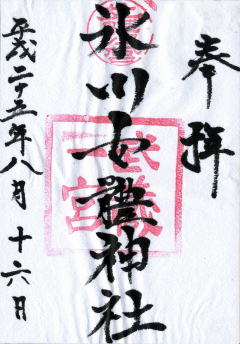 奉拝
氷川女體神社
武蔵一宮
平成二十五年八月十六日